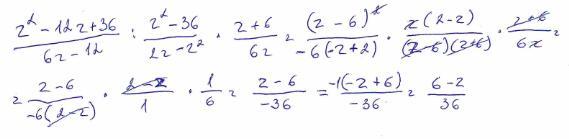 \frac{z^2 - 12z + 36}{6z - 12} : \frac{z^2 - 36}{2z - z^2} \cdot \frac{z + 6}{6z} = \frac{(z - 6)^2}{-6(-z + 2)} \cdot \frac{z(2 - z)}{(z - 6)(z + 6)} \cdot \frac{z + 6}{6z} =
= \frac{z - 6}{-6(2 - z)} \cdot \frac{2 - z}{1} \cdot \frac{1}{6} = \frac{z - 6}{-36} = \frac{-1(-z + 6)}{-36} = \frac{6 - z}{36}